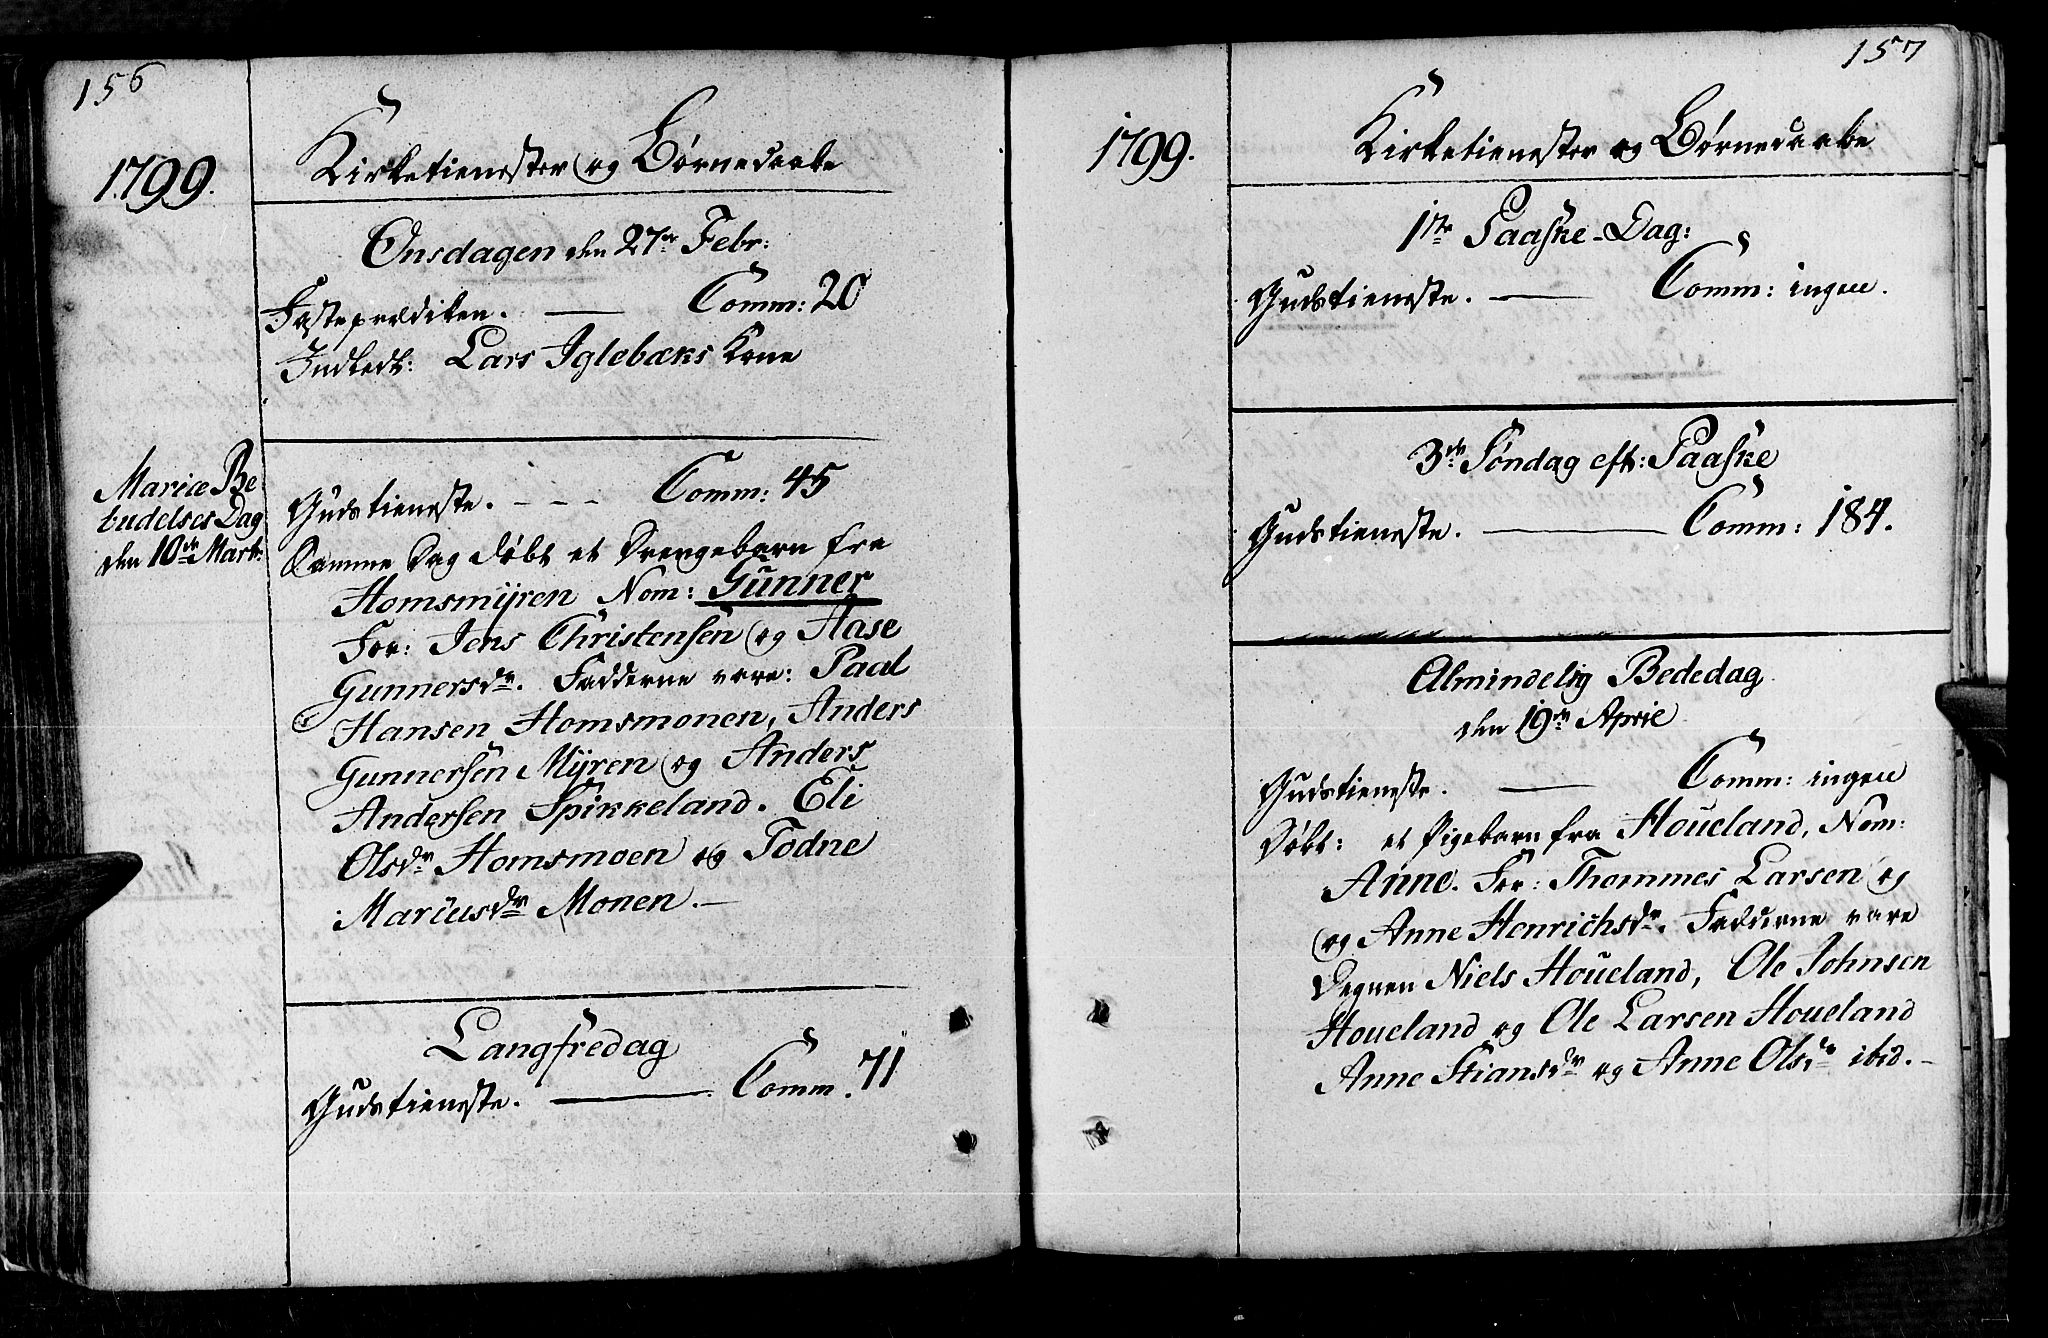 156
1799.
Kirketienester og Børnedaabe
Onsdagen den 27de Febr:
Fasteprædiken. Comm: 20
Indledt: Lars Iglebæks Kone
Mariæ Be-
budelses Dag
den 10de Marts:
Gudstieneste. - - - Comm: 45
Samme Dag døbt et Drengebarn fra
Homsmyren Nom: Gunner
For: Jens Christensen og Aase
Gunnersdr. Fadderne vare: Paal
Hansen Homsmonen, Anders
Gunnersen Myren og Anders
Andersen Spikkeland. Eli
Olsdr Homsmoen og Todne
Marcusdr Monen.
Langfredag
Gudstieneste. Comm. 71
157
1799.
Kirketienester og Børnedaabe
1ste Paaske-Dag:
Gudstieneste. Comm: ingen.
3de Søndag eft: Paaske
Gudstieneste. Comm: 184.
Almindelig Bededag
den 19de April
Gudstieneste. Comm: ingen
Døbt: et Pigebarn fra Houeland, Nom:
Anne. For: Thommes Larsen og
og Anne Henrichsdr. Fadderne vare
Degnen Niels Houeland, Ole Johnsen
Houeland og Ole Larsen Houeland
Anne Stiansdr og Anne Olsdr ibid.